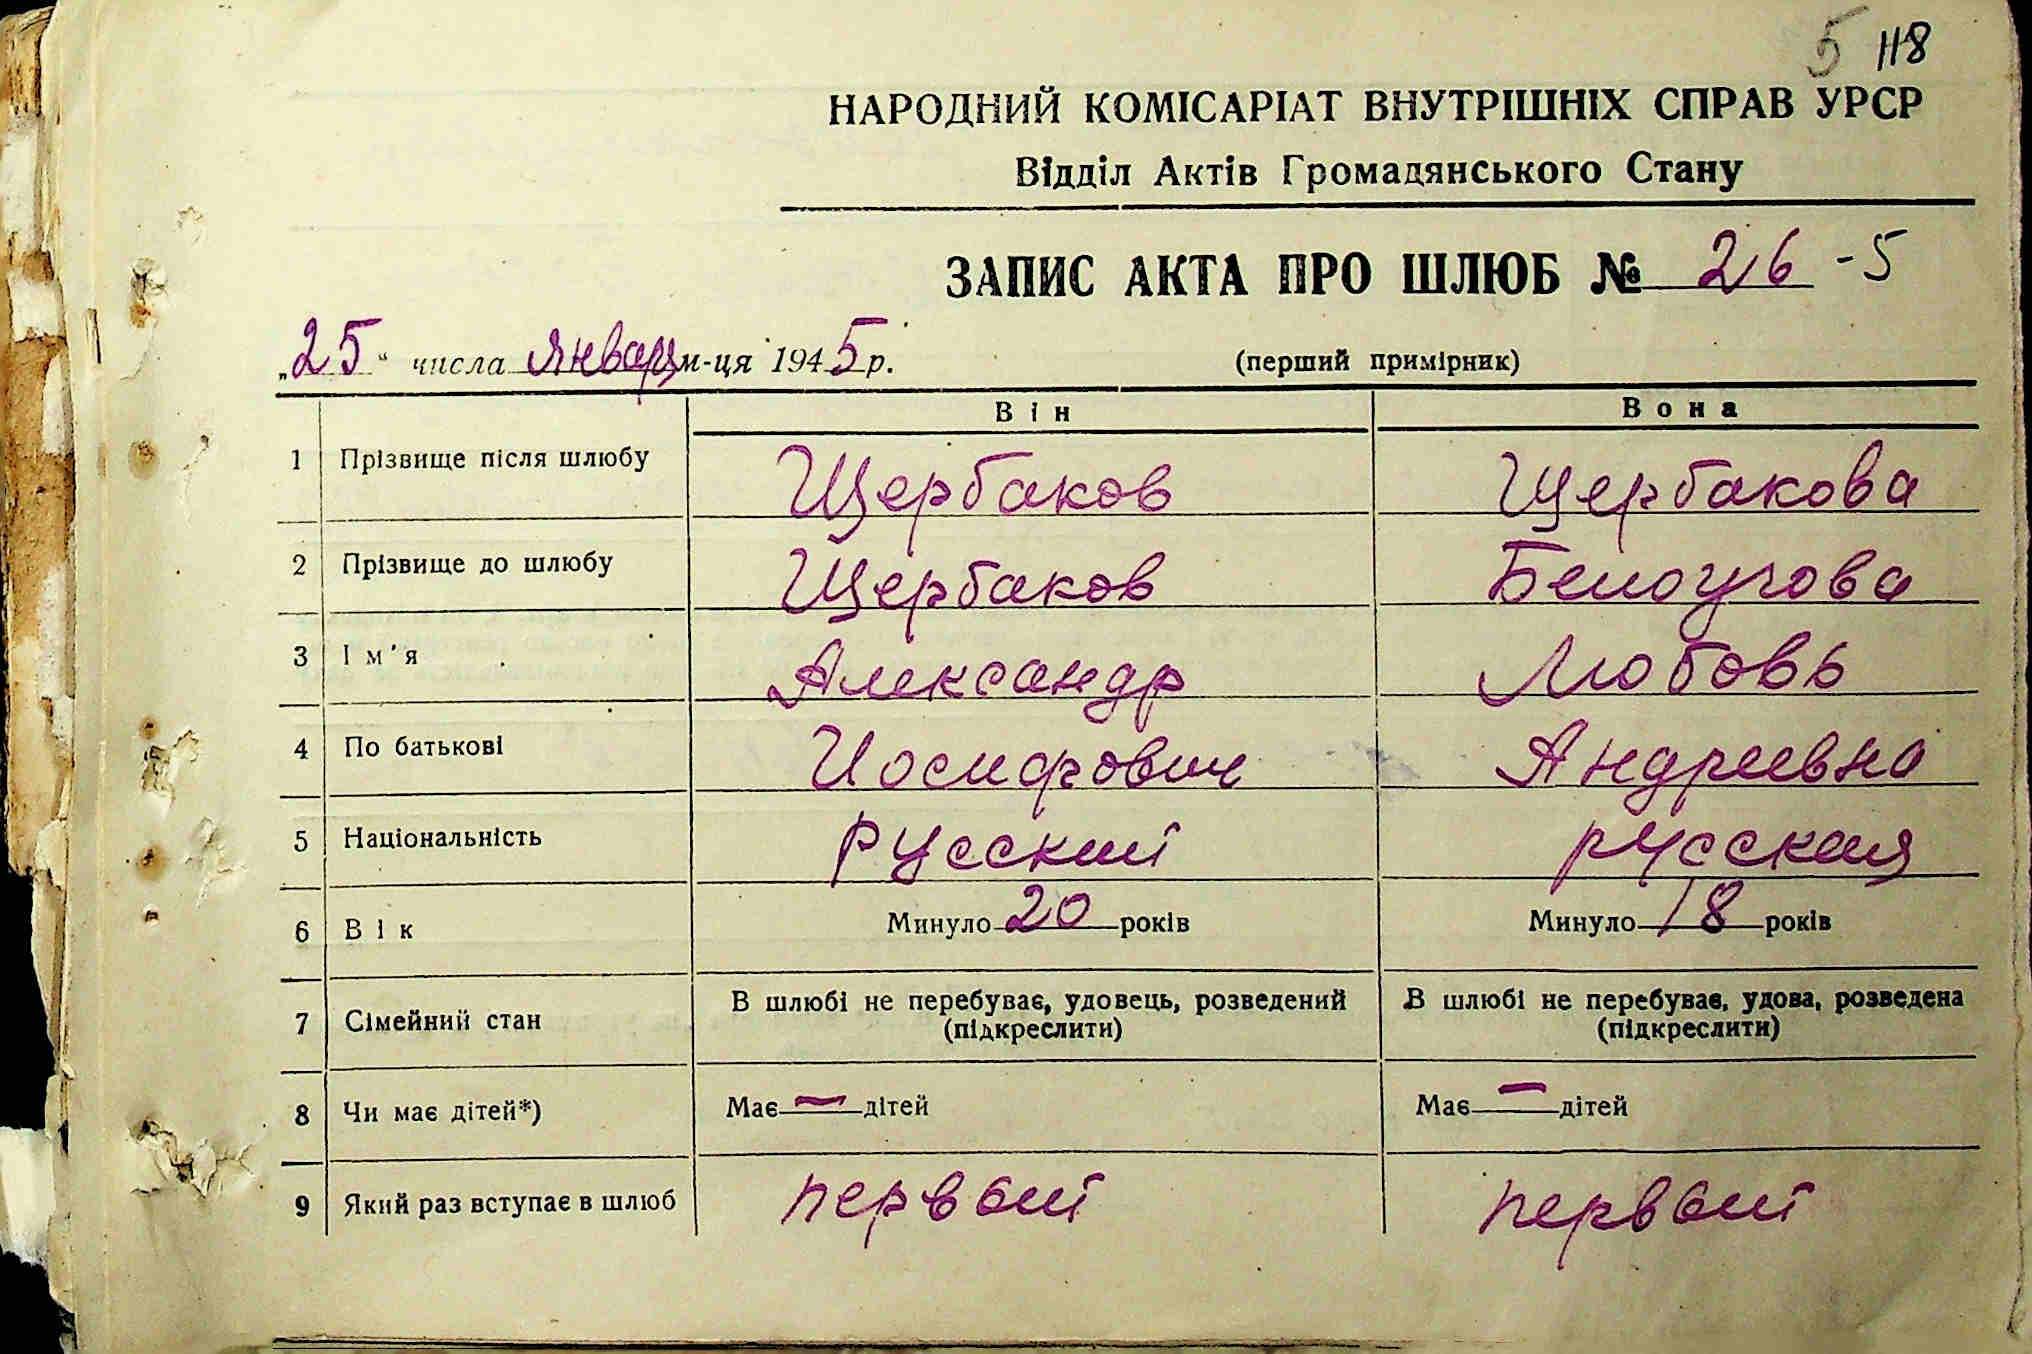 5 118
НАРОДНИЙ КОМІСАРІАТ ВНУТРІШНІХ СПРАВ УРСР
Відділ Актів Громадянського Стану
ЗАПИС АКТА ПРО ШЛЮБ № 26 -5
„25" числа января м-ця 1945 р. (перший примірник)
Він Вона
1 Прізвище після шлюбу Щербаков Щербакова
2 Прізвище до шлюбу Щербаков Белоугова
3 Ім'я Александр Любовь
4 По батькові Иосифович Андреевна
5 Національність Русский русская
6 Вік Минуло 20 років Минуло 18 років
7 Сімейний стан В шлюбі не перебуває, удовець, розведений (підкреслити) В шлюбі не перебуває, удова, розведена (підкреслити)
8 Чи має дітей*) Має — дітей Має — дітей
9 Який раз вступає в шлюб первый первый